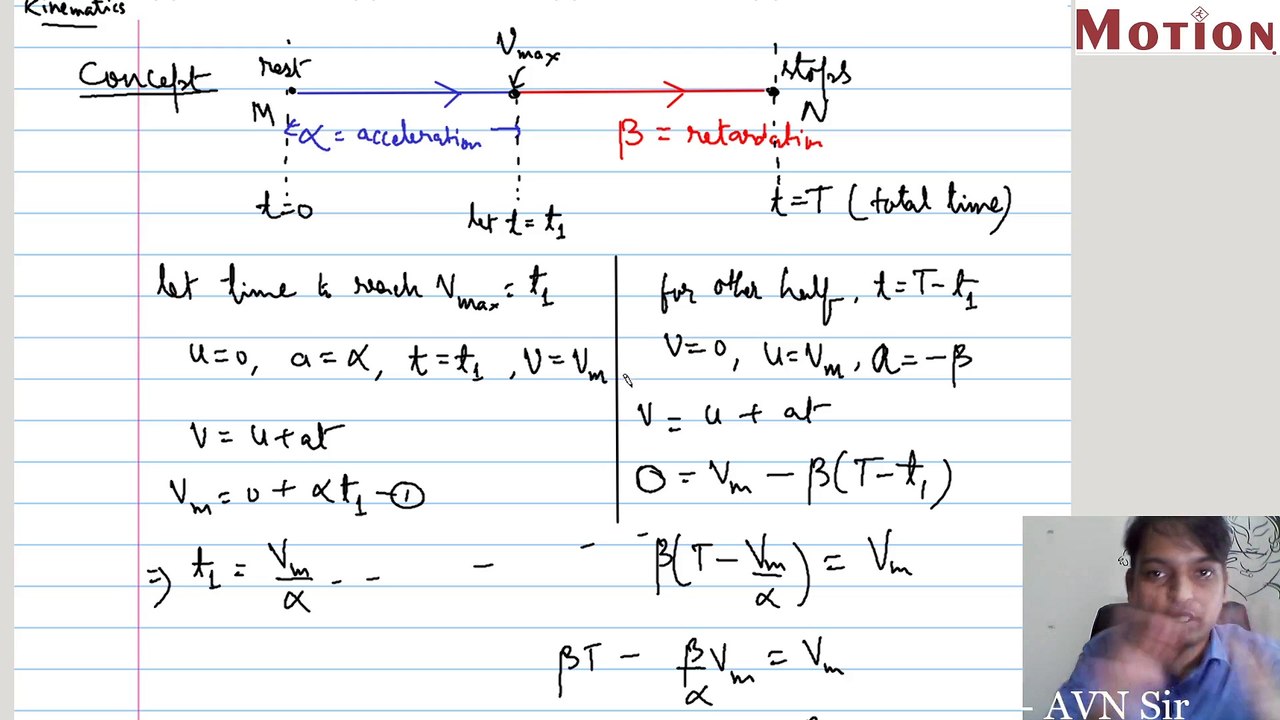 Kinematics
MOTION
Concept
rest
Vmax
stops
M
N
α = acceleration
β = retardation
t=0
let t = t₁
t=T (total time)
let time to reach Vmax = t₁
u=0, a=α, t=t₁, V=Vm
V = u+at
Vm = 0 + αt₁ -①
⇒ t₁ = Vm/α - -
for other half, t=T-t₁
V=0, u=Vm, a=-β
V = u + at
0 = Vm - β(T-t₁)
β(T - Vm/α) = Vm
βT - β/α Vm = Vm
- AVN Sir